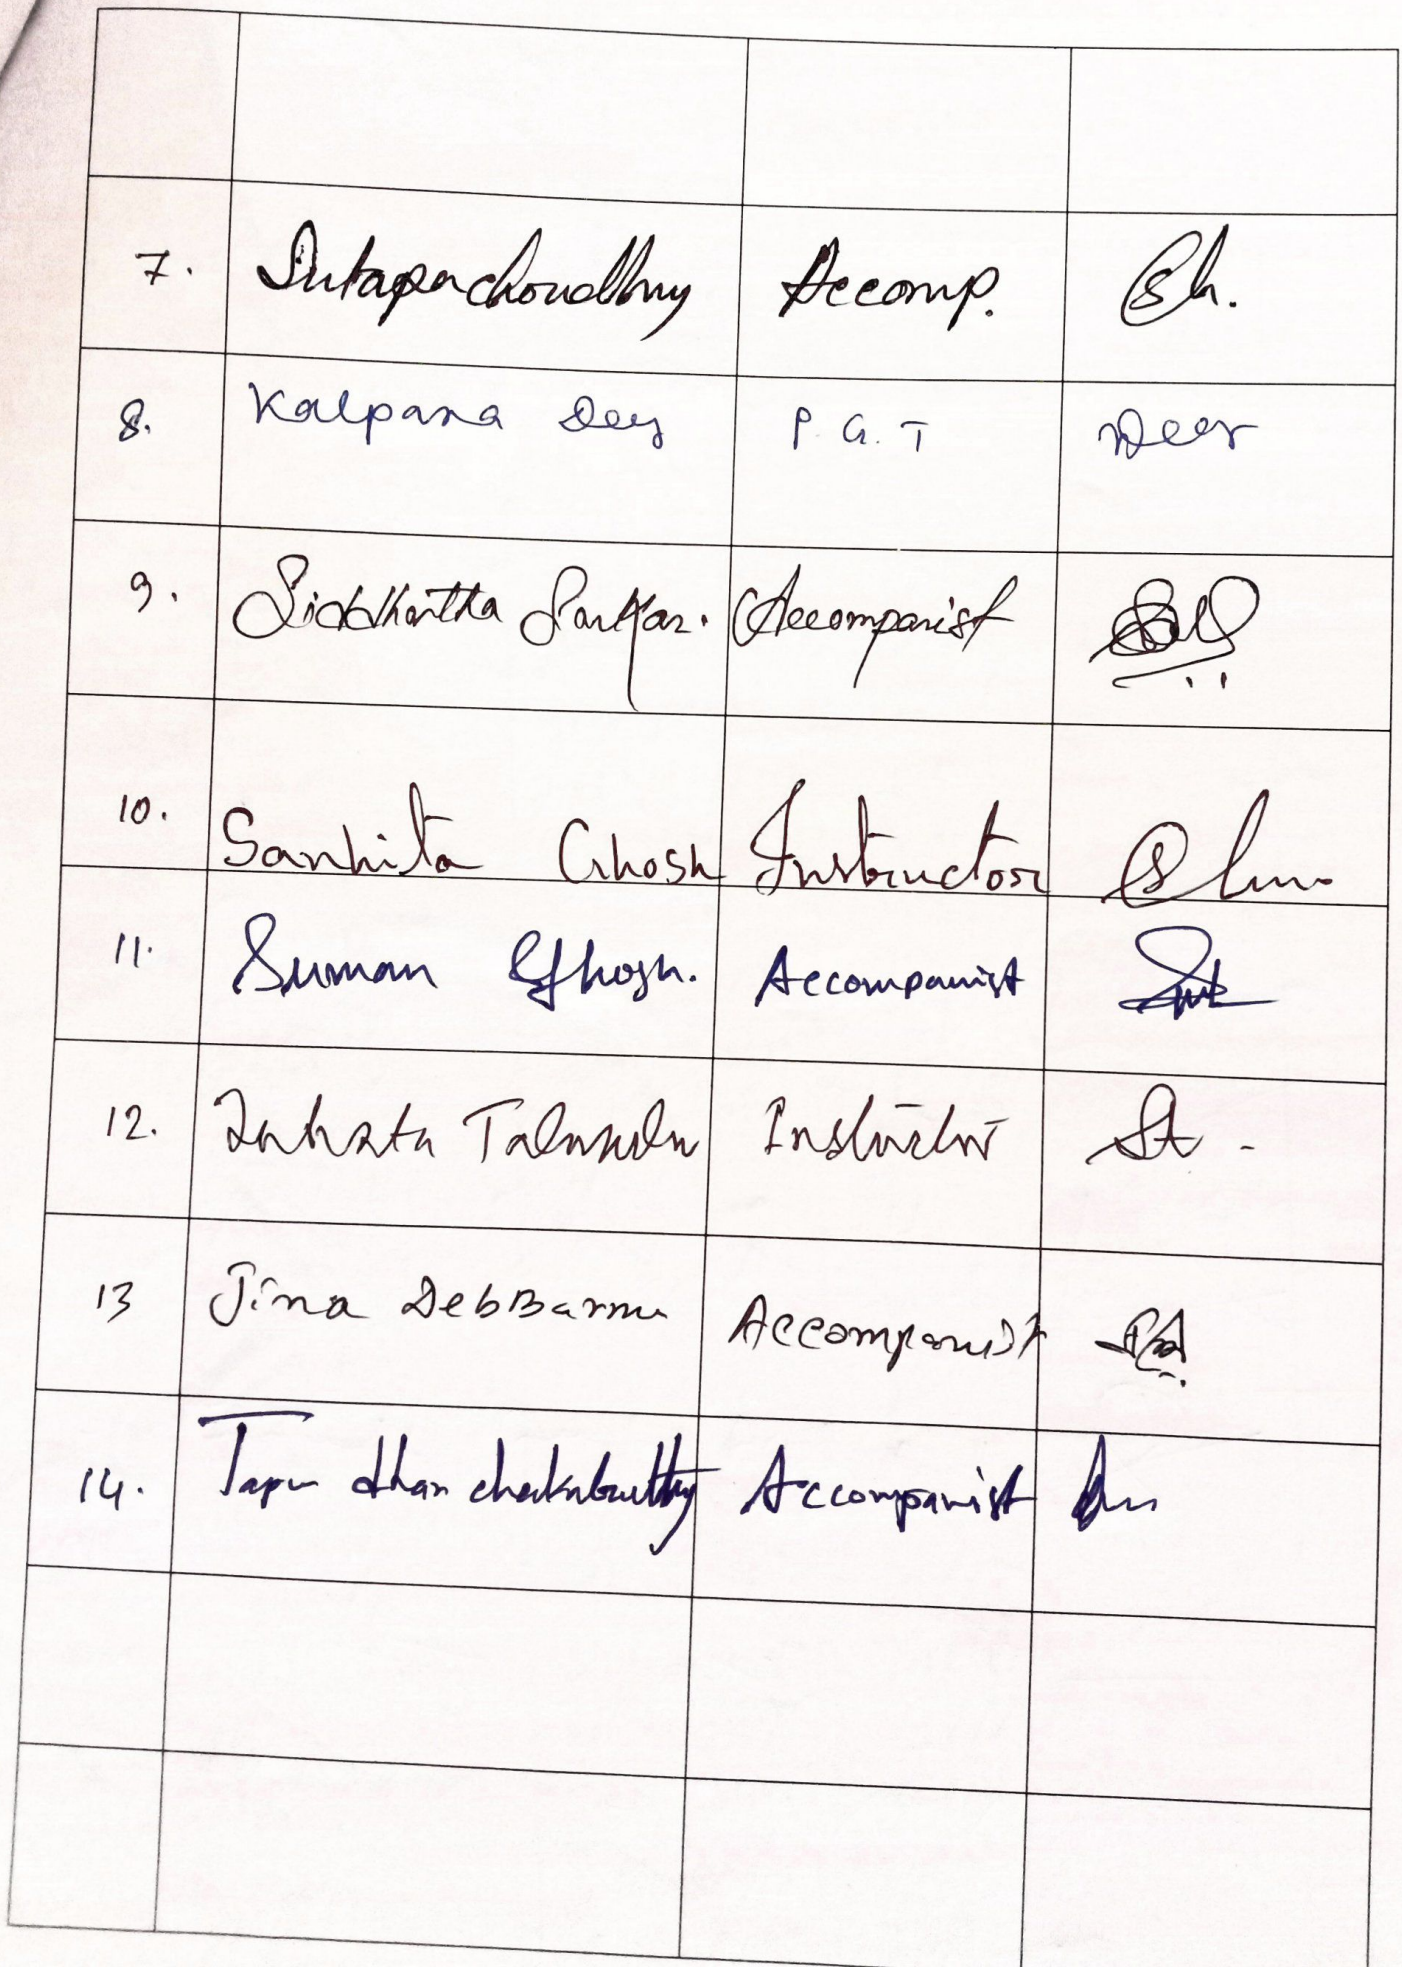 7. Sutapa choudhury Accomp. Sh.
8. Kalpana Dey P. G. T
9. Siddhartha Sarkar. Accompanist
10. Sanhita Ghosh Instructor
11. Suman Ghosh. Accompanist
12. Talukda Instructor
13 Jina DebBarma Accompanist
14. Tapan dhan chakraborty Accompanist